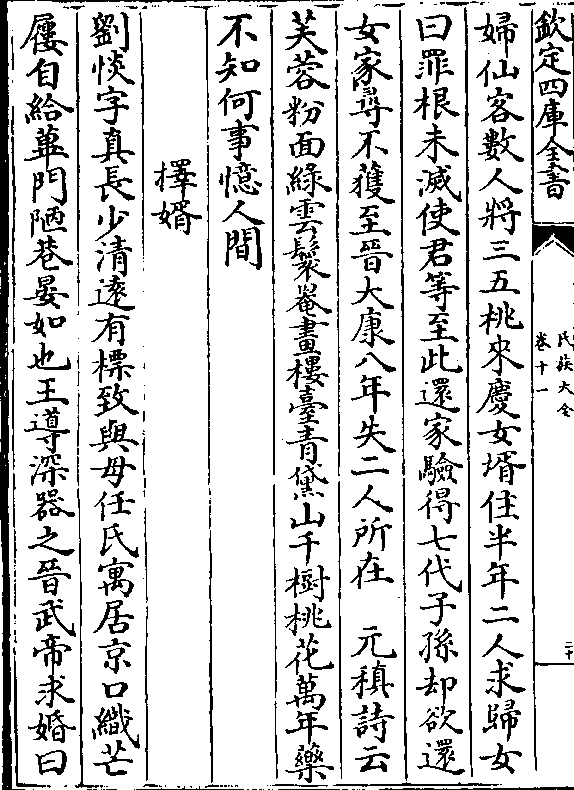 欽定四庫全書
氏族大全
卷十一
二十
婦仙客數人將三五桃來慶女壻住半年二人求歸女
曰罪根未滅使君等至此還家驗得七代子孫却欲還
女家尋不獲至晉大康八年失二人所在 元稹詩云
芙蓉粉面綠雲鬟罨畫樓臺青黛山千樹桃花萬年藥
不知何事憶人間
擇婿
劉惔字真長少清遠有標致與母任氏寓居京口織芒
屨自給蓽門陋巷晏如也王導深器之晉武帝求婚曰